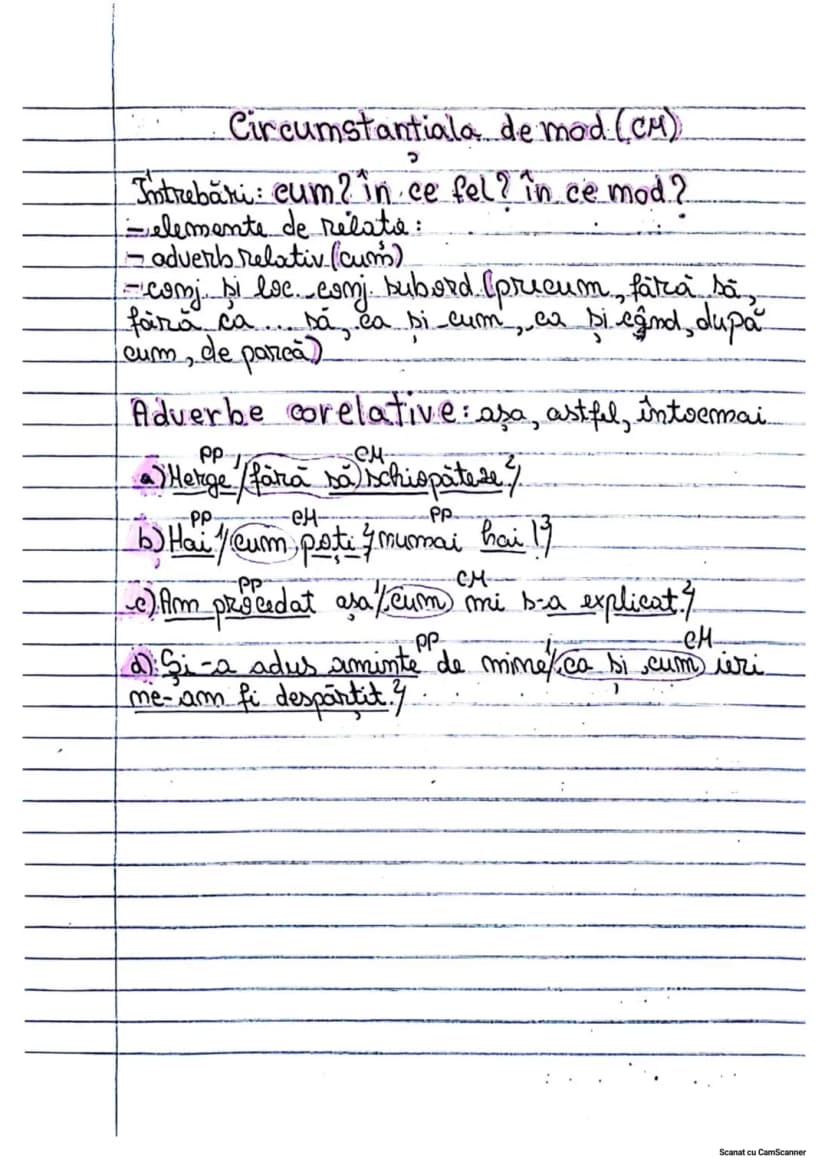 Circumstanțiala de mod (CM)
Întrebări: cum? în ce fel? în ce mod?
- elemente de relație:
- adverb relativ (cum)
- conj. și loc. conj. subord. (precum, fără să,
fără ca ... să, ca și cum, ca și când, după
cum, de parcă)
Adverbe corelative: așa, astfel, întocmai
PP CM
a) Merge 1/ fără să șchiopăteze 2/
PP CM PP
b) Hai 1/ cum poți 2/ numai hai! 3/
PP CM
c) Am procedat așa 1/ cum mi s-a explicat. 2/
PP CM
d) Și-a adus aminte de mine 1/ ca și cum ieri
ne-am fi despărțit. 2/
Scanat cu CamScanner